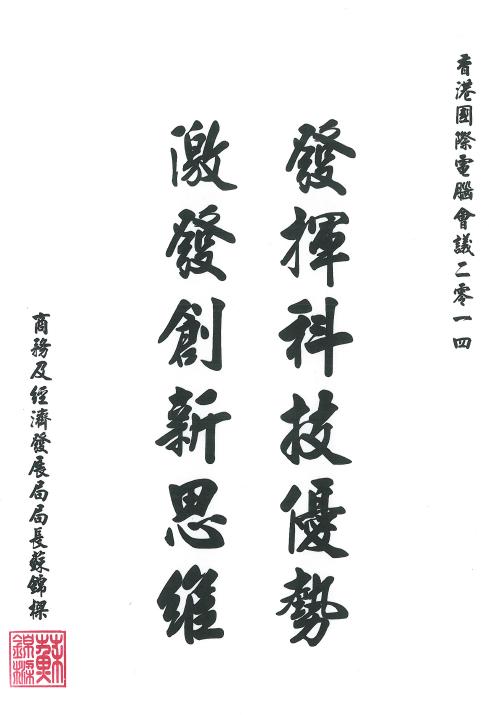 香港國際電腦會議二零一四
發揮科技優勢
激發創新思維
商務及經濟發展局局長蘇錦樑
蘇錦樑